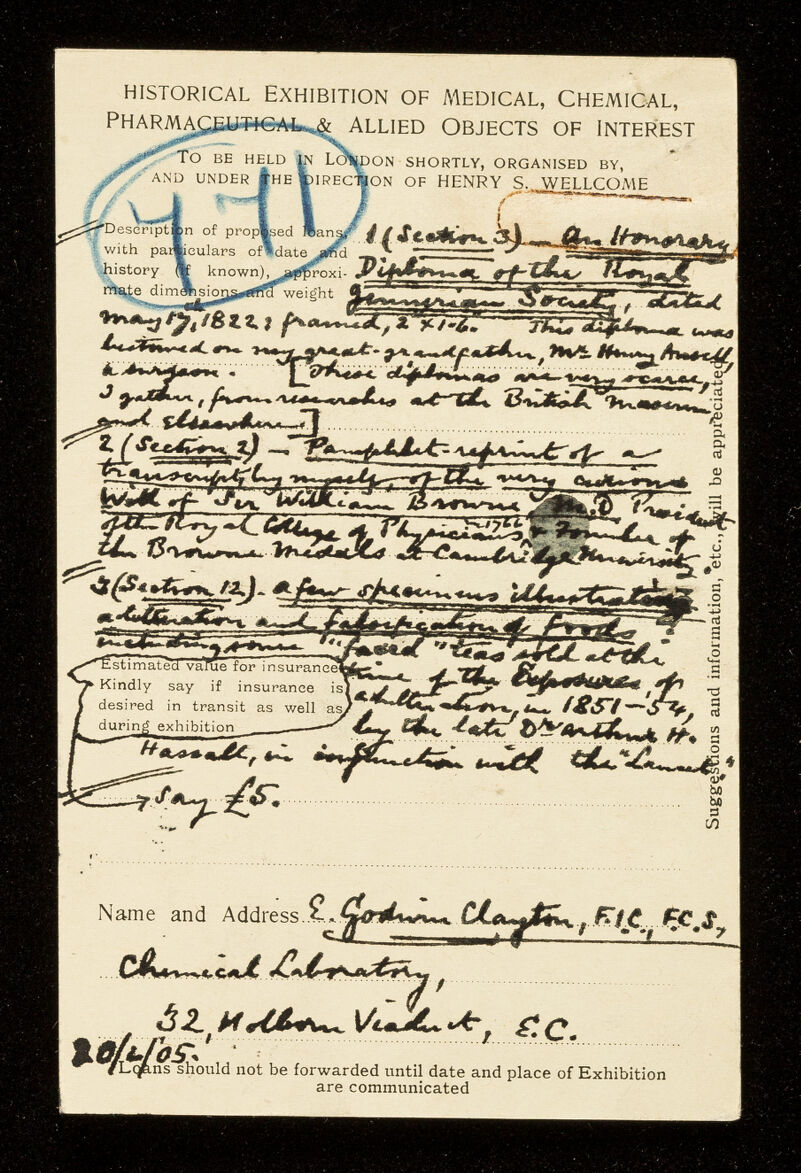 HISTORICAL EXHIBITION OF MEDICAL, CHEMICAL,
PHARMACEUTICAL & ALLIED OBJECTS OF INTEREST
TO BE HELD IN LONDON SHORTLY, ORGANISED BY,
AND UNDER THE DIRECTION OF HENRY S. WELLCOME
471
Description of proposed loans,
with particulars of date and
history (if known), approxi-
mate dimensions and weight
1 (Section 3) — An Honorary
Diploma of the Royal
Jennerian Society, dated
May 17th, 1822; framed, 2 x 1·6. This diploma was
bestowed on my great-grandfather, Mr. Henry Ansell,
a surgeon. [These diplomas are very scarce,
I gather, from researches at the British Museum
and elsewhere.]
2 (Section 2) — Pamphlet-reprint of a
transcript, by myself, of the very curious
Will of Sir William Browne, M.D. President
of the Royal College of Physicians, in 1766 & Founder of
the Browne Medals at Cambridge University.
3 (Section 12). A few specimens illustrating
adulteration and falsification of foods;
including some "faced" teas sold at the
time of the Exposures, of
adulteration, in 1851–54,
by the late Dr. Arthur H.
Hassall, in conjunction with the "Lancet."
Estimated value for insurance
Kindly say if insurance is
desired in transit as well as
during exhibition
say £5.
Suggestions and information, etc., will be appreciated
Name and Address E. Godwin Clayton, F.I.C., F.C.S,
Chemical Laboratory,
32, Holborn Viaduct, E.C.
20/2/05.
Loans should not be forwarded until date and place of Exhibition
are communicated